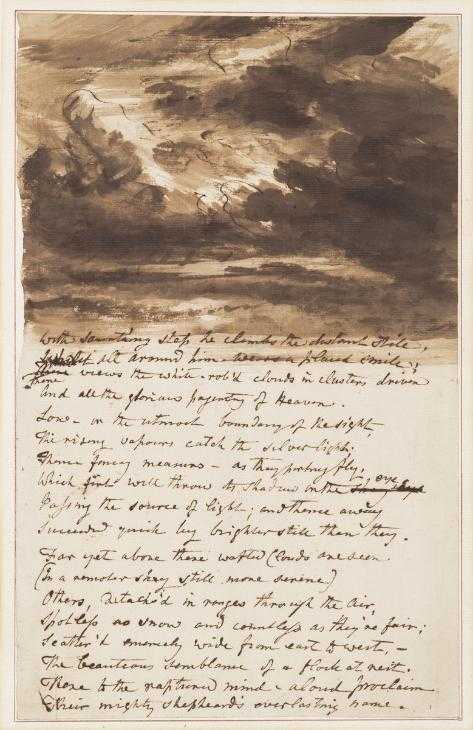 With sauntring steps he climbs the distant stile,
Whilst all around him wears a placid smile;
There views the white-rob'd clouds in clusters driven
And all the glorious pageantry of Heaven.
Low - on the utmost boundary of the sight,
The rising vapours catch the silver light;
Thence fancy measures - as they parting fly,
Which first will throw its shadow on the eye
Passing the source of light; and thence away
Succeeded quick by brighter still than they.
Far yet above these wafted Clouds are seen
(In a remoter sky still more serene)
Others, detach'd in ranges through the Air,
Spotless as snow and countless as they're fair;
Scatter'd immensely wide from east to west, -
The beauteous semblance of a flock at rest.
These to the raptured mind - aloud proclaim
Their mighty shepherds everlasting name.